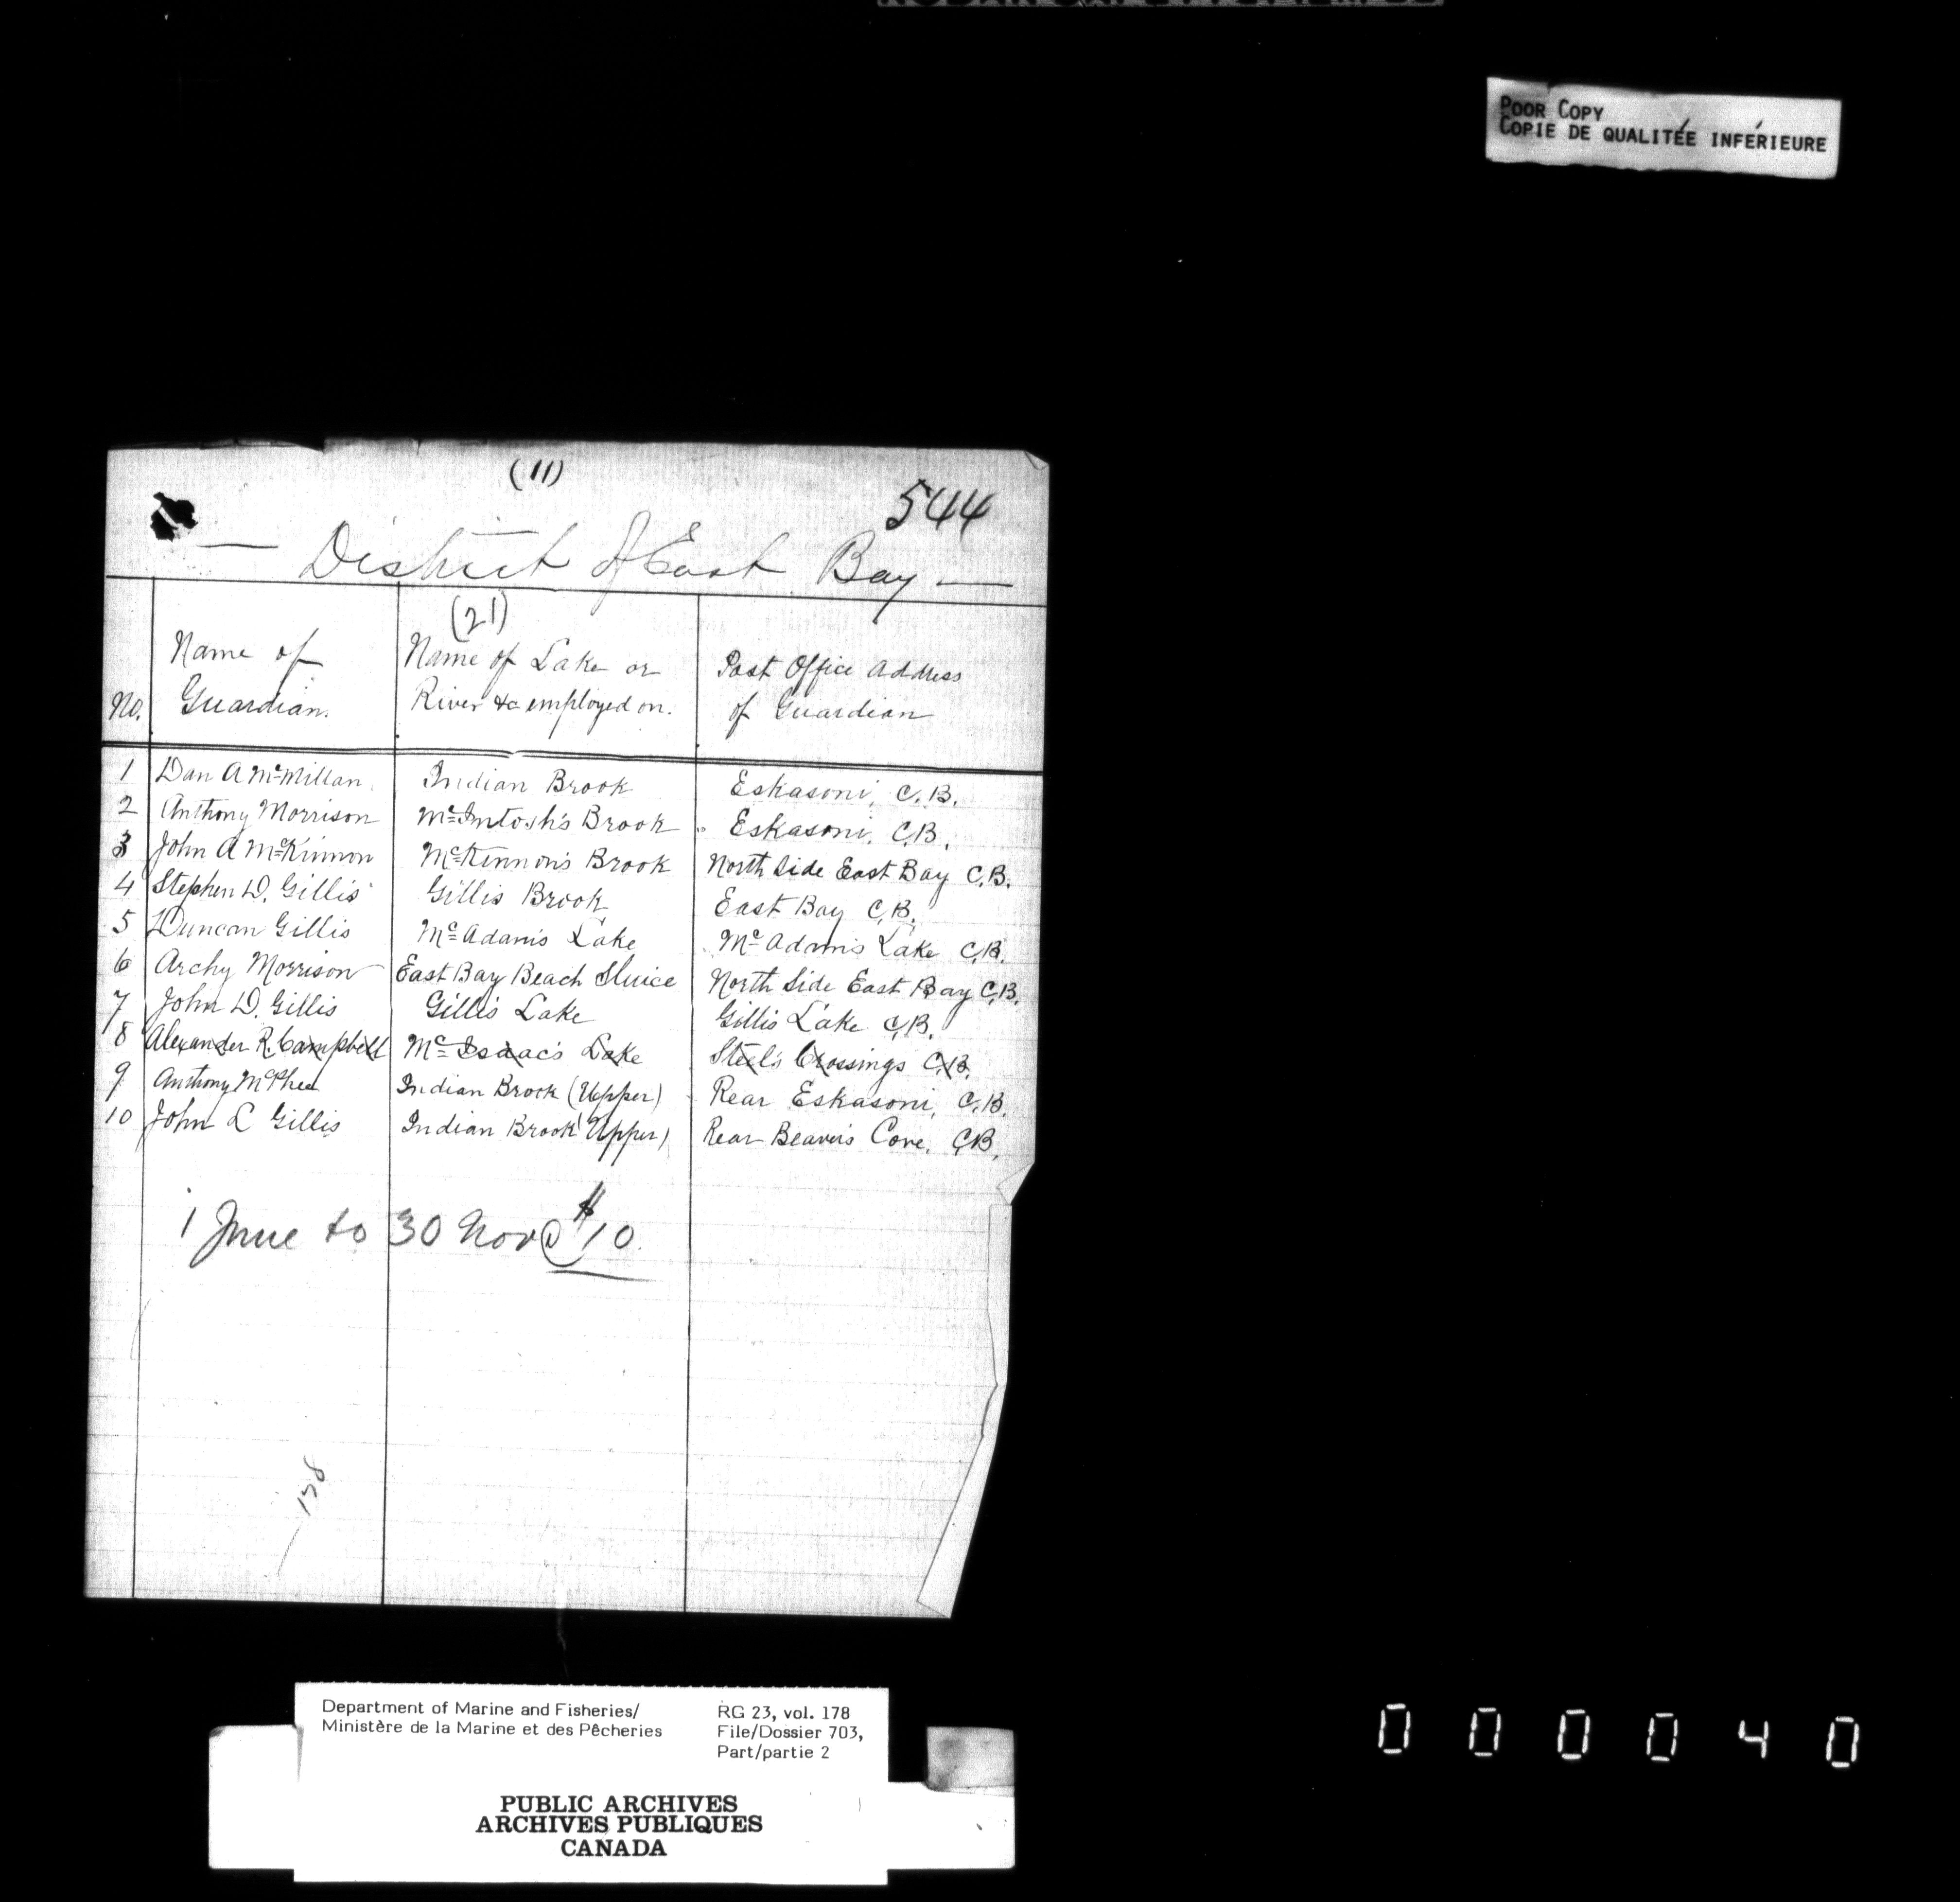 POOR COPY
COPIE DE QUALITÉE INFÉRIEURE
(11)
544
— District of East Bay —
(21)
No. Name of Guardian. Name of Lake or River &c employed on. Post Office Address of Guardian
1 Dan A McMillan. Indian Brook Eskasoni, C.B.
2 Anthony Morrison McIntosh's Brook Eskasoni, C.B.
3 John A McKinnon McKinnon's Brook North Side East Bay C.B.
4 Stephen D. Gillis Gillis Brook East Bay C.B.
5 Duncan Gillis McAdam's Lake McAdam's Lake C.B.
6 Archy Morrison East Bay Beach Sluice North Side East Bay C.B.
7 John D. Gillis Gillis Lake Gillis Lake C.B.
8 Alexander R. Campbell McIsaac's Lake Steel's Crossings C.B.
9 Anthony McPhee Indian Brook (Upper) Rear Eskasoni, C.B.
10 John L Gillis Indian Brook (Upper) Rear Beaver's Cove, C.B.
1 June to 30 Nov @ $10.
138
Department of Marine and Fisheries/ RG 23, vol. 178
Ministère de la Marine et des Pêcheries File/Dossier 703,
Part/partie 2
PUBLIC ARCHIVES
ARCHIVES PUBLIQUES
CANADA
000040